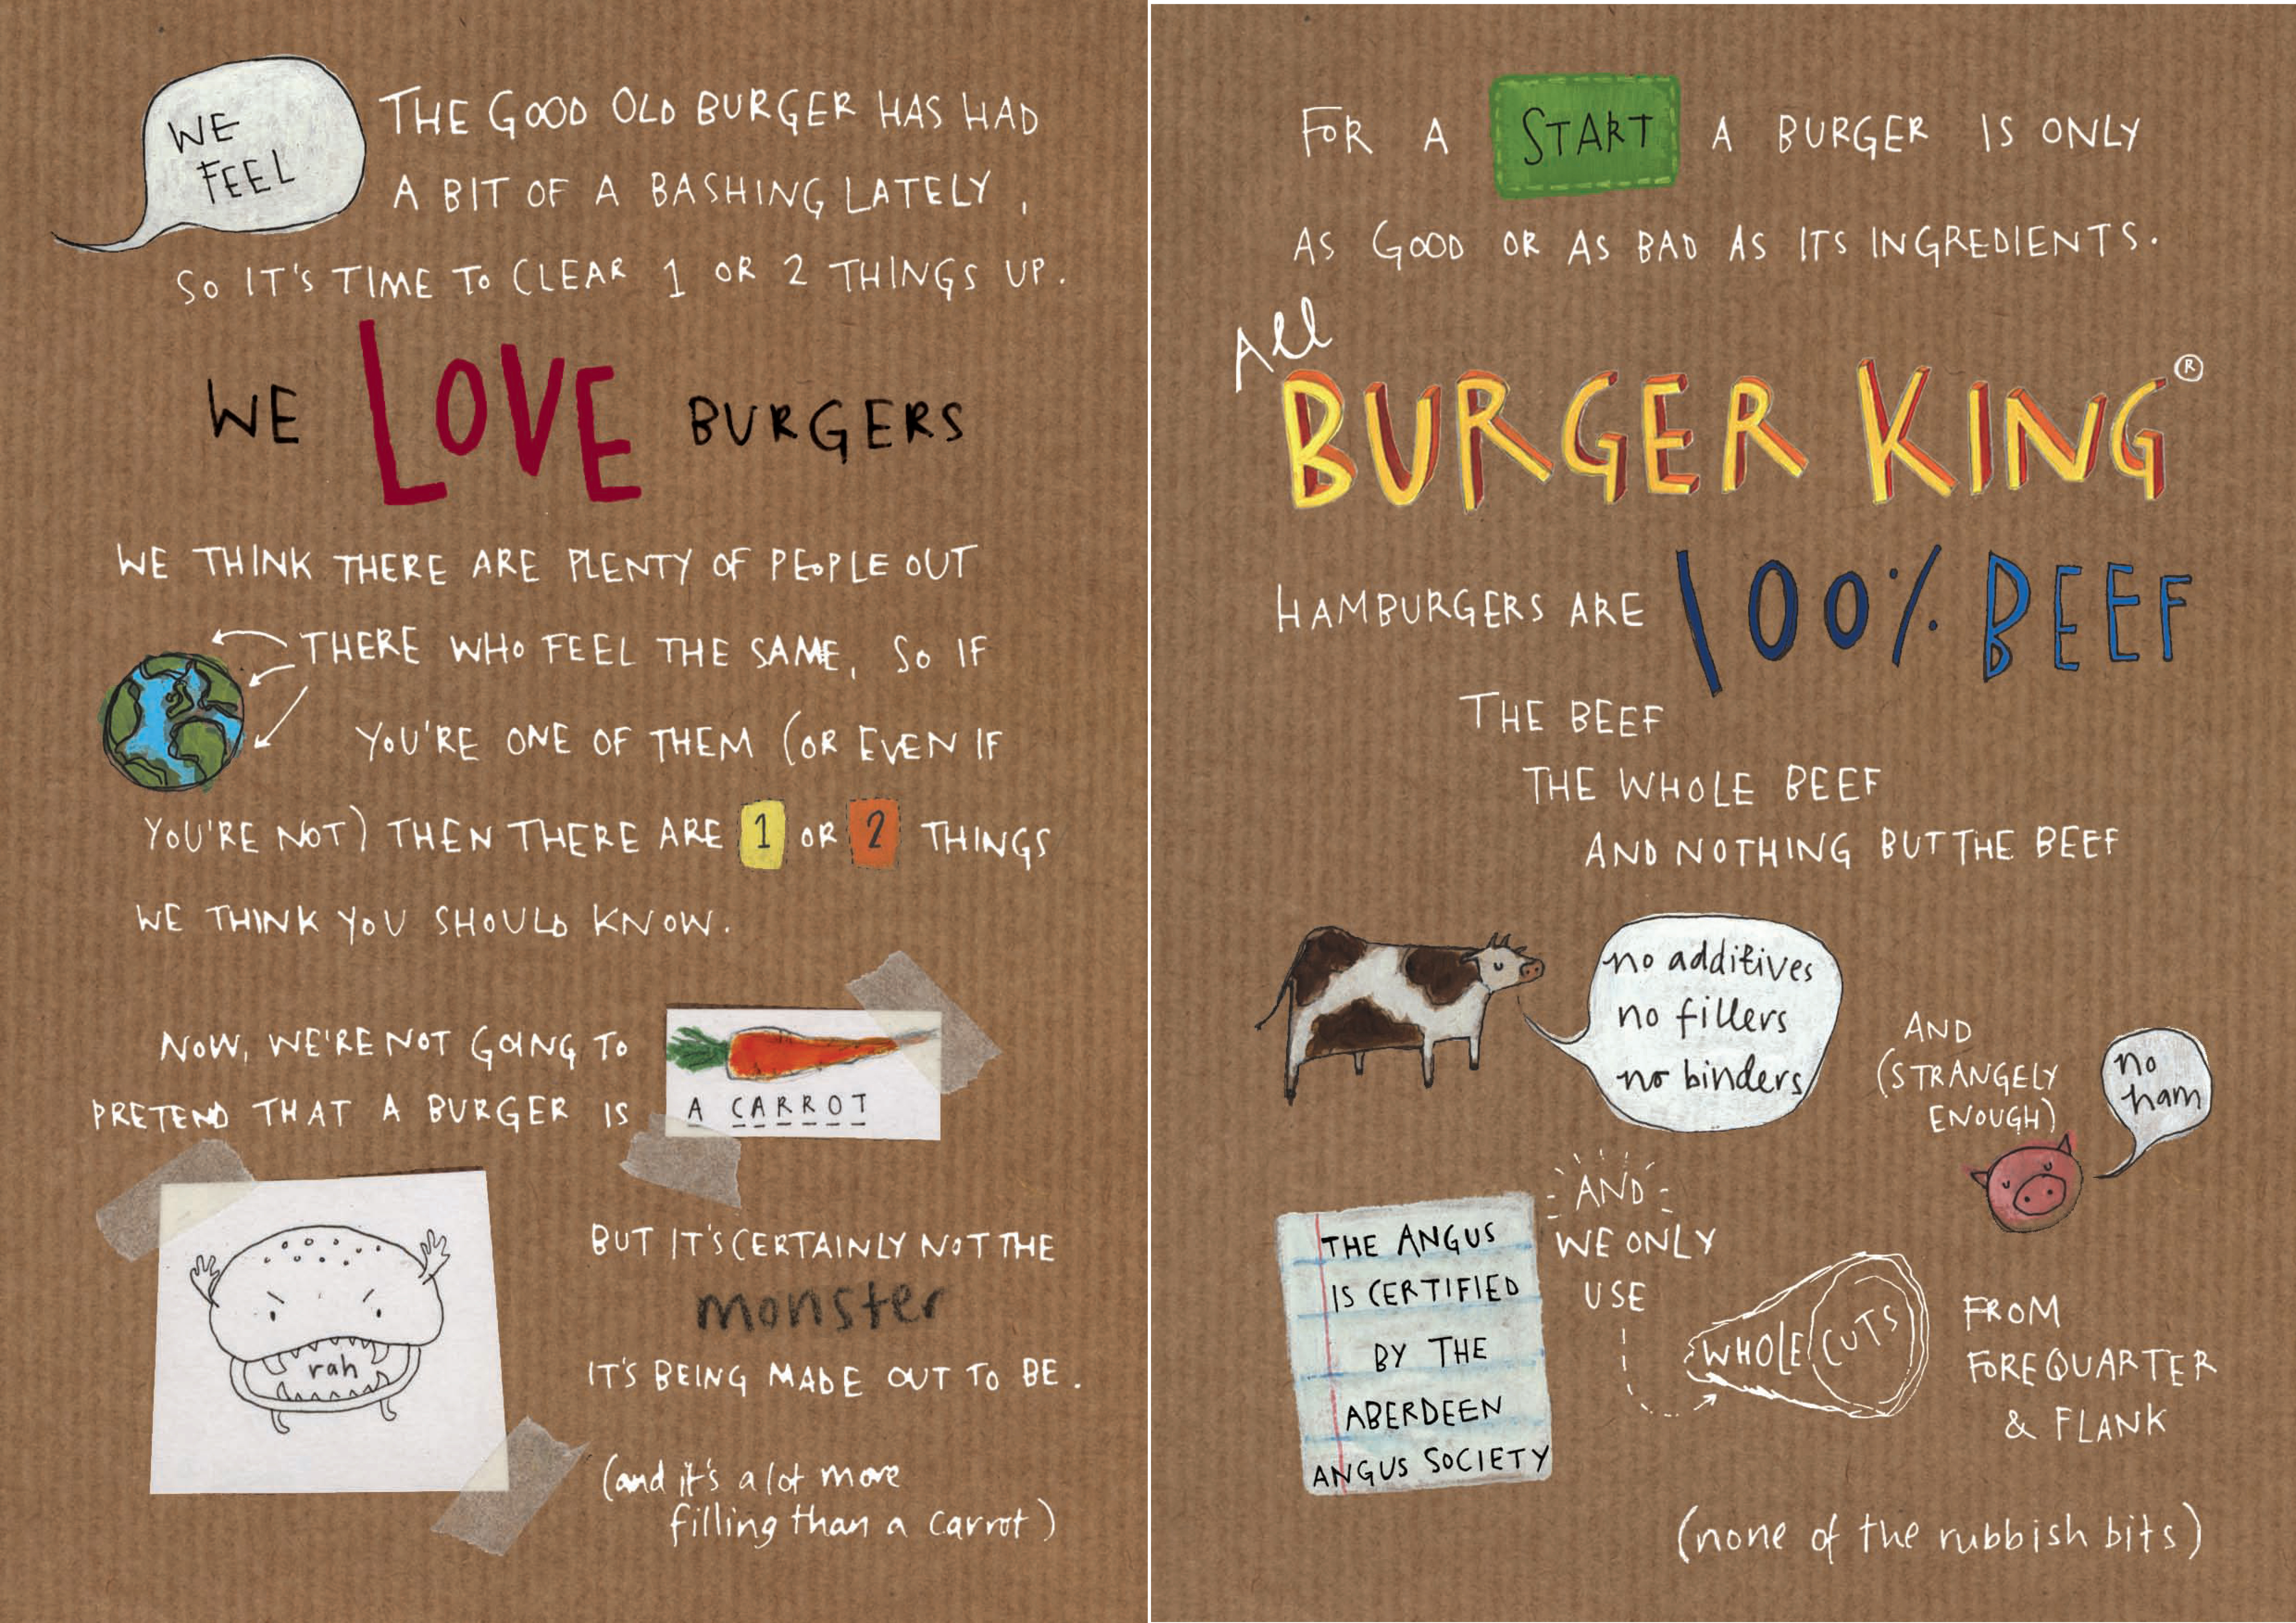 WE
FEEL
THE GOOD OLD BURGER HAS HAD
A BIT OF A BASHING LATELY,
SO IT'S TIME TO CLEAR 1 OR 2 THINGS UP.
WE LOVE BURGERS
WE THINK THERE ARE PLENTY OF PEOPLE OUT
THERE WHO FEEL THE SAME, SO IF
YOU'RE ONE OF THEM (OR EVEN IF
YOU'RE NOT) THEN THERE ARE 1 OR 2 THINGS
WE THINK YOU SHOULD KNOW.
NOW, WE'RE NOT GOING TO
PRETEND THAT A BURGER IS
A CARROT
rah
BUT IT'S CERTAINLY NOT THE
monster
IT'S BEING MADE OUT TO BE.
(and it's a lot more
filling than a carrot)
FOR A START A BURGER IS ONLY
AS GOOD OR AS BAD AS ITS INGREDIENTS.
All
BURGER KING®
HAMBURGERS ARE 100% BEEF
THE BEEF
THE WHOLE BEEF
AND NOTHING BUT THE BEEF
no additives
no fillers
no binders
AND
(STRANGELY
ENOUGH)
no
ham
THE ANGUS
IS CERTIFIED
BY THE
ABERDEEN
ANGUS SOCIETY
AND
WE ONLY
USE
WHOLE CUTS
FROM
FOREQUARTER
& FLANK
(none of the rubbish bits)